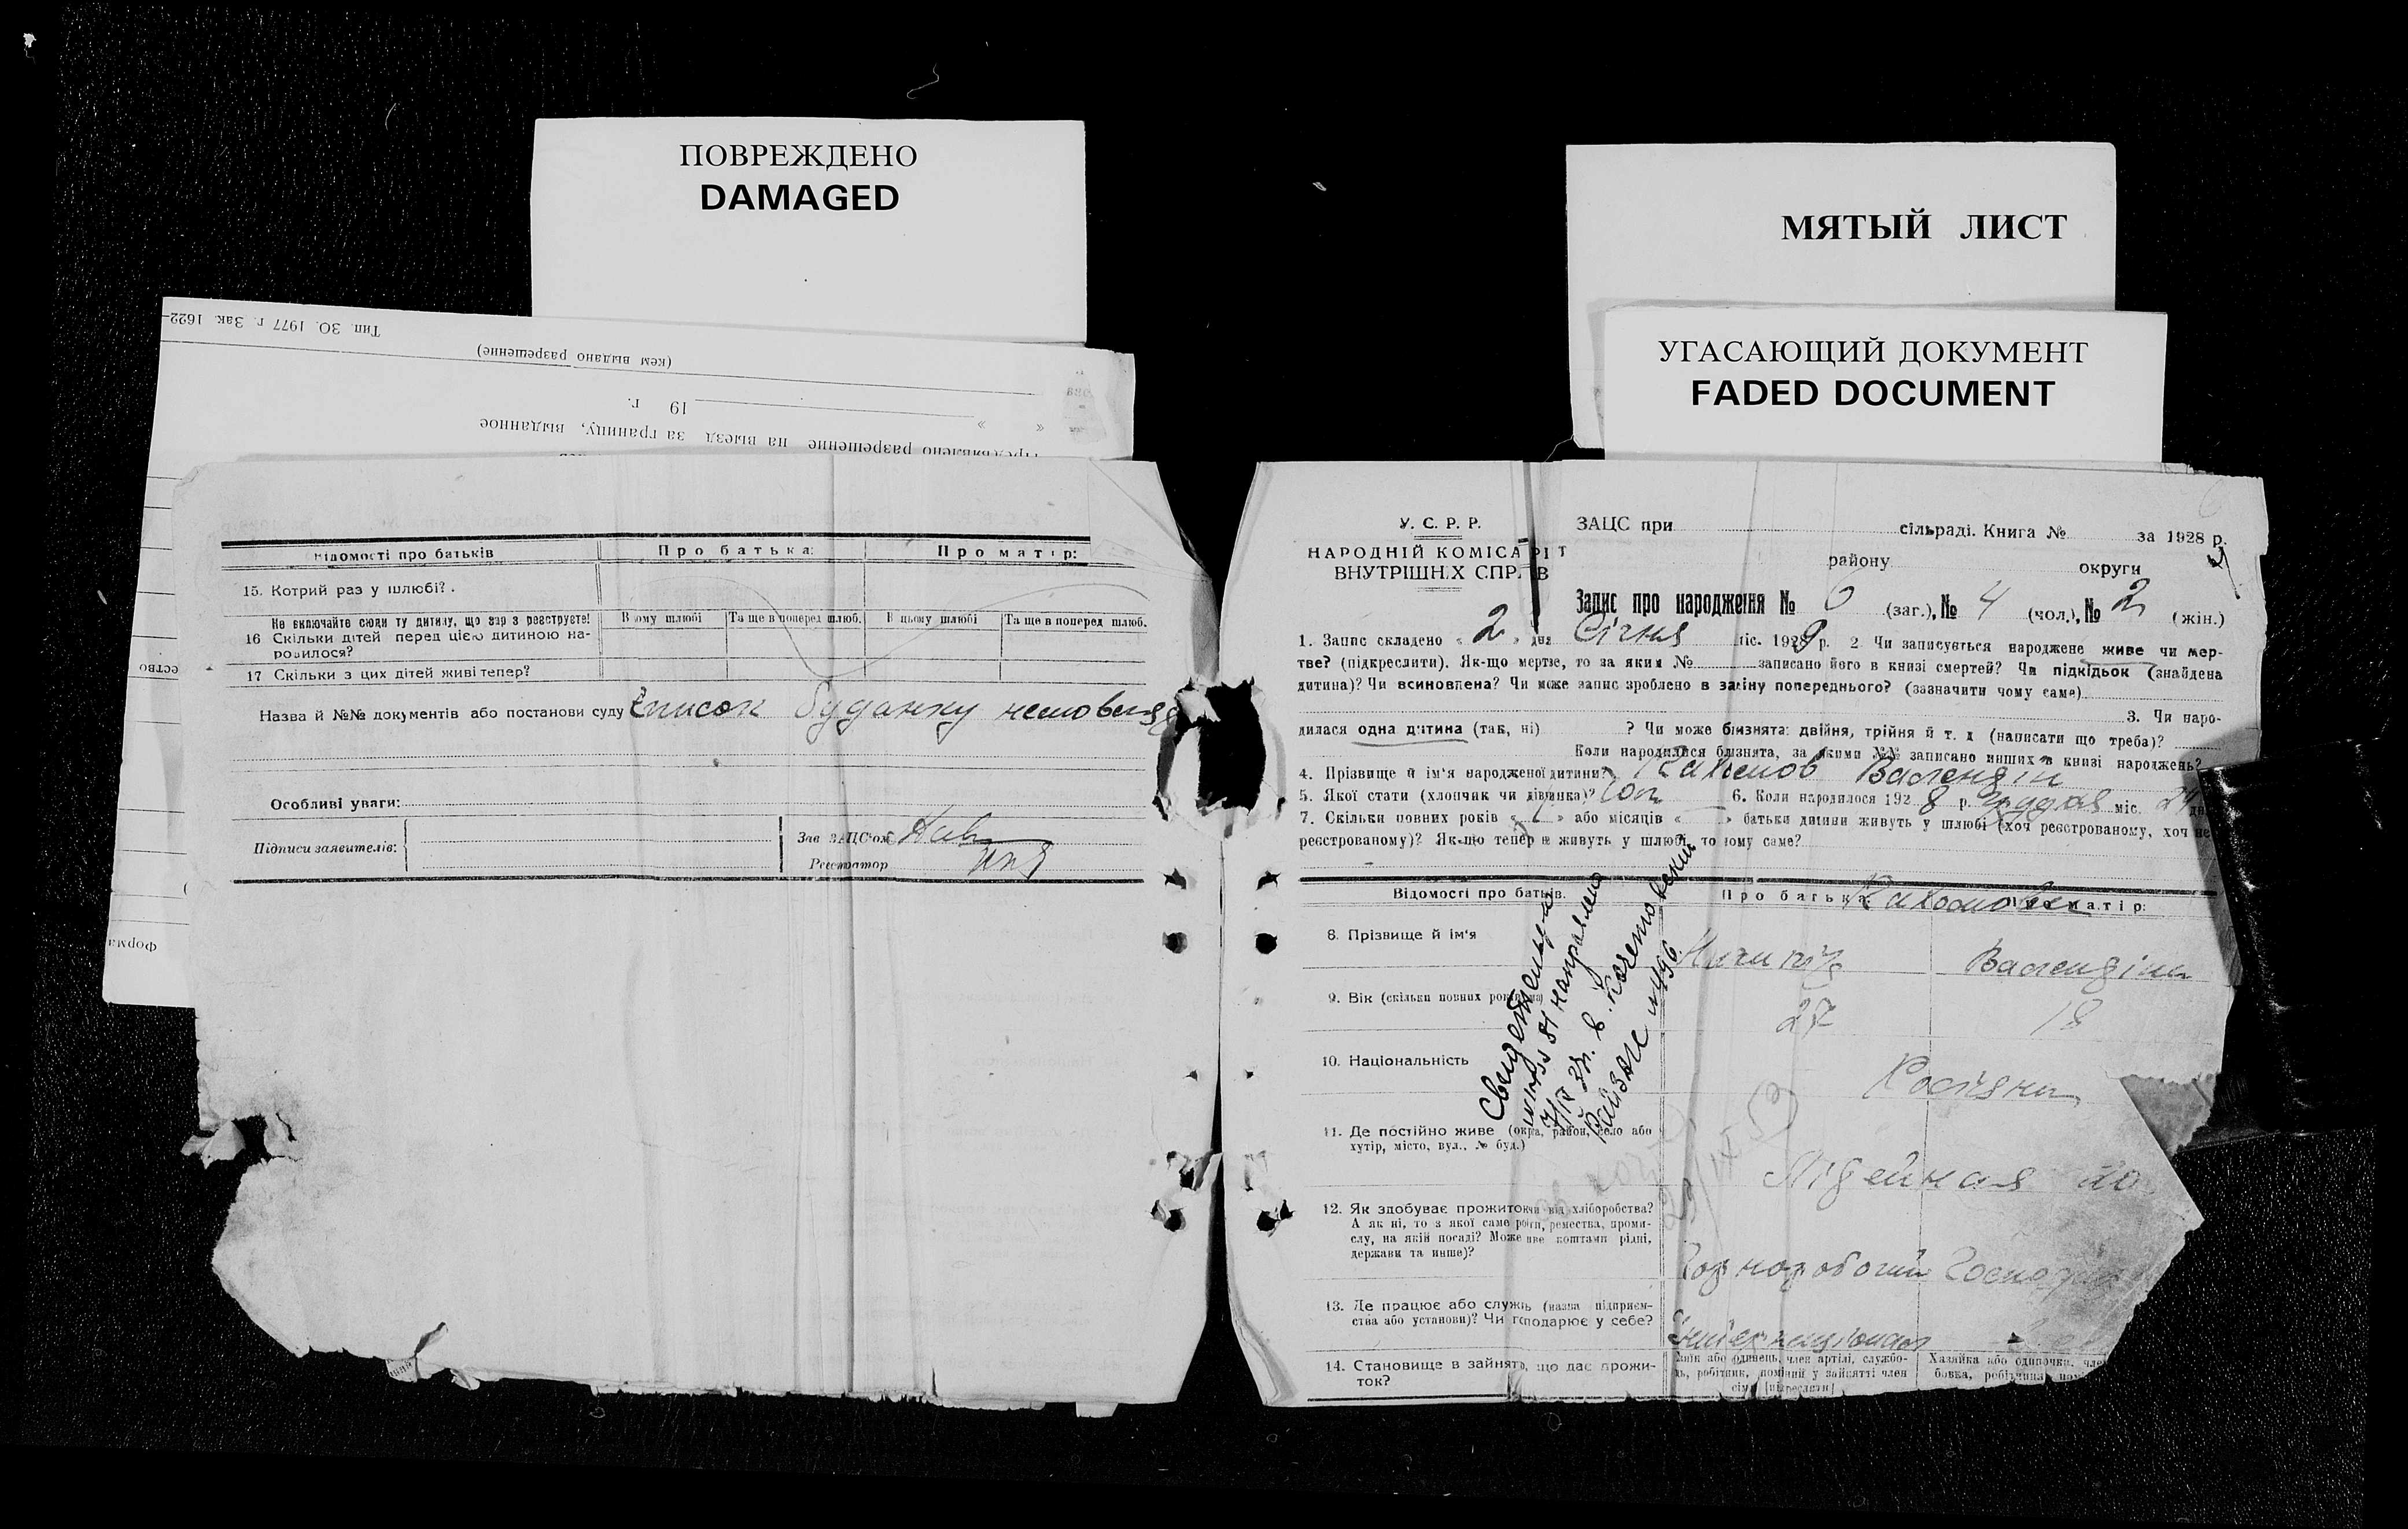 ПОВРЕЖДЕНО
DAMAGED
МЯТЫЙ ЛИСТ
УГАСАЮЩИЙ ДОКУМЕНТ
FADED DOCUMENT
Тип. ЗО. 1977 г. Зак. 1622
(кем выдано разрешение)
« » 19 г.
разрешение на выезд за границу, выданное
ество
Форма
Відомості про батьків
Про батька:
Про матір:
15. Котрий раз у шлюбі?
Не включайте сюди ту дитину, що зар з реєструєте!
16 Скільки дітей перед цією дитиною на-
родилося?
В цьому шлюбі
Та ще в поперед шлюб.
В цьому шлюбі
Та ще в поперед шлюб.
17 Скільки з цих дітей живі тепер?
Назва й №№ документів або постанови суду Список будинку
Особливі уваги:
Підписи заявителів:
Зав ЗАЦС'ом
Реєстратор
У. С. Р. Р.
НАРОДНІЙ КОМІСАРІЯТ
ВНУТРІШНІХ СПРАВ
ЗАЦС при сільраді. Книга № за 1928 р.
району округи
Запис про народження № 6 (заг.), № 4 (чол.), № 2 (жін.)
1. Запис складено « 2 » дня Січня міс. 1929 р. 2 Чи записується народжене живе чи мер-
тве? (підкреслити). Як-що мертве, то за яким № записано його в книзі смертей? Чи підкідьок (знайдена
дитина)? Чи всиновлена? Чи може запис зроблено в заміну попереднього? (зазначити чому саме)
3. Чи наро-
дилася одна дитина (так, ні) ? Чи може близнята: двійня, трійня й т. д (написати що треба)?
Коли народилися близнята, за якими №№ записано инших в книзі народжень?
4. Прізвище й ім'я народженої дитини? Валендін
5. Якої стати (хлопчик чи дівчинка)? 6. Коли народилося 1928 р. Грудня міс. 24 дня
7. Скільки повних років « 1 » або місяців « » батьки дитини живуть у шлюбі (хоч реєстрованому, хоч не
реєстрованому)? Як-що тепер не живуть у шлюбі, то чому саме?
Відомості про батьків.
Про батька:
Про матір:
8. Прізвище й ім'я
Валендіна
9. Вік (скільки повних років має)
27
18
10. Національність
Росіяни
11. Де постійно живе (окра, район, село або
хутір, місто, вул., № буд.)
12. Як здобуває прожиток чи від хліборобства?
А як ні, то з якої саме роботи, ремества, проми-
слу, на якій посаді? Може живе коштами рідні,
держави та инше)?
Чорноробочий
13. Де працює або служить (назва підприєм-
ства або установи)? Чи господарює у себе?
14. Становище в зайнятті, що дає прожи-
ток?
Хазяїн або одинець, член артілі, службо-
вець, робітник, помічний у зайнятті член
сім'ї [підкреслити]
Хазяйка або одиночка, чле
бовка, робітниця, пом
направлено
7/IX 51 г. в
райЗАГС № 496
29/IX 53